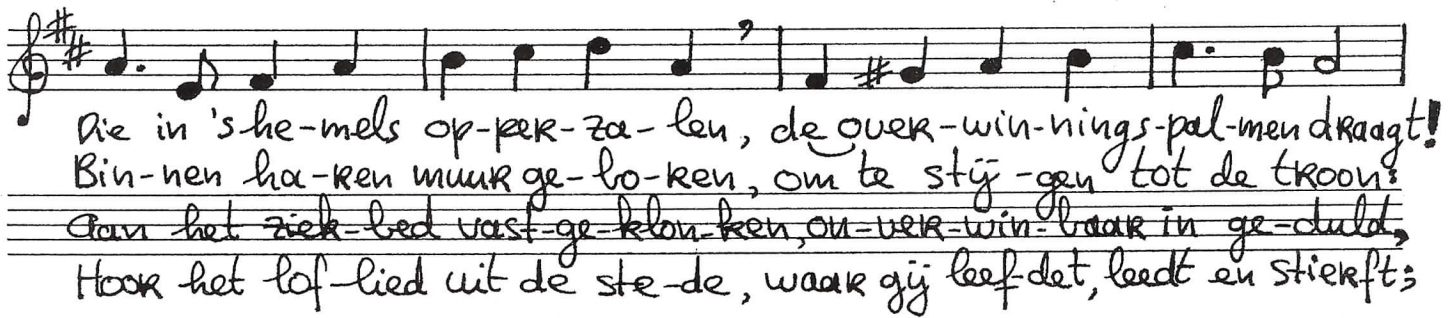 Die in 's he-mels op-per-za-len, de over-win-nings-pal-men draagt!
Bin-nen ha-ren muur ge-bo-ren, om te stij-gen tot de troon:
Aan het ziek-bed vast-ge-klon-ken, on-ver-win-baar in ge-duld,
Hoor het lof-lied uit de ste-de, waar gij leef-det, leedt en stierft;